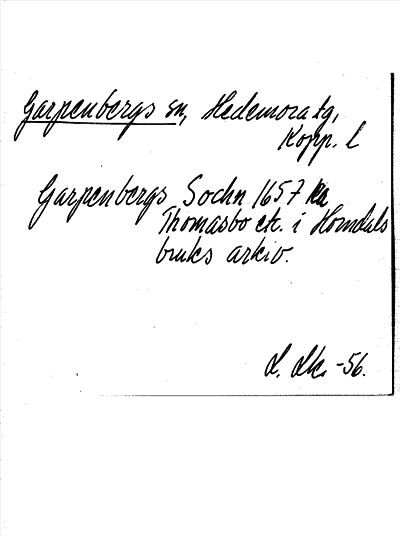 Garpenbergs sn, Hedemora tg,
Kopp. l
Garpenbergs Sochn 1657 ka
Thomasbo etc. i Horndals
bruks arkiv.
-56.